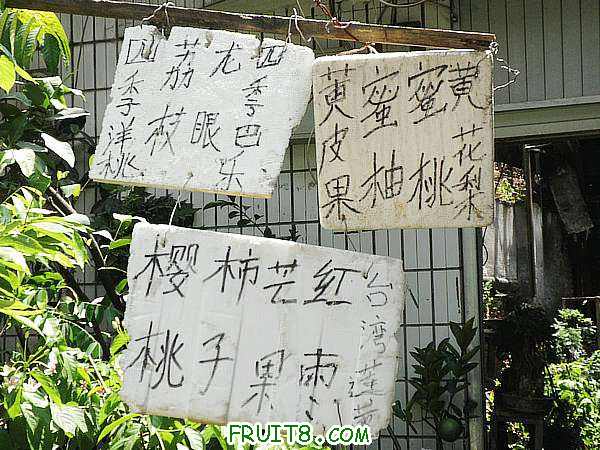 四季巴乐
尤眼
荔枝
四季洋桃
黄花梨
蜜桃
蜜柚
黄皮果
台湾莲
红枣
芒果
柿子
樱桃
FRUIT8.COM